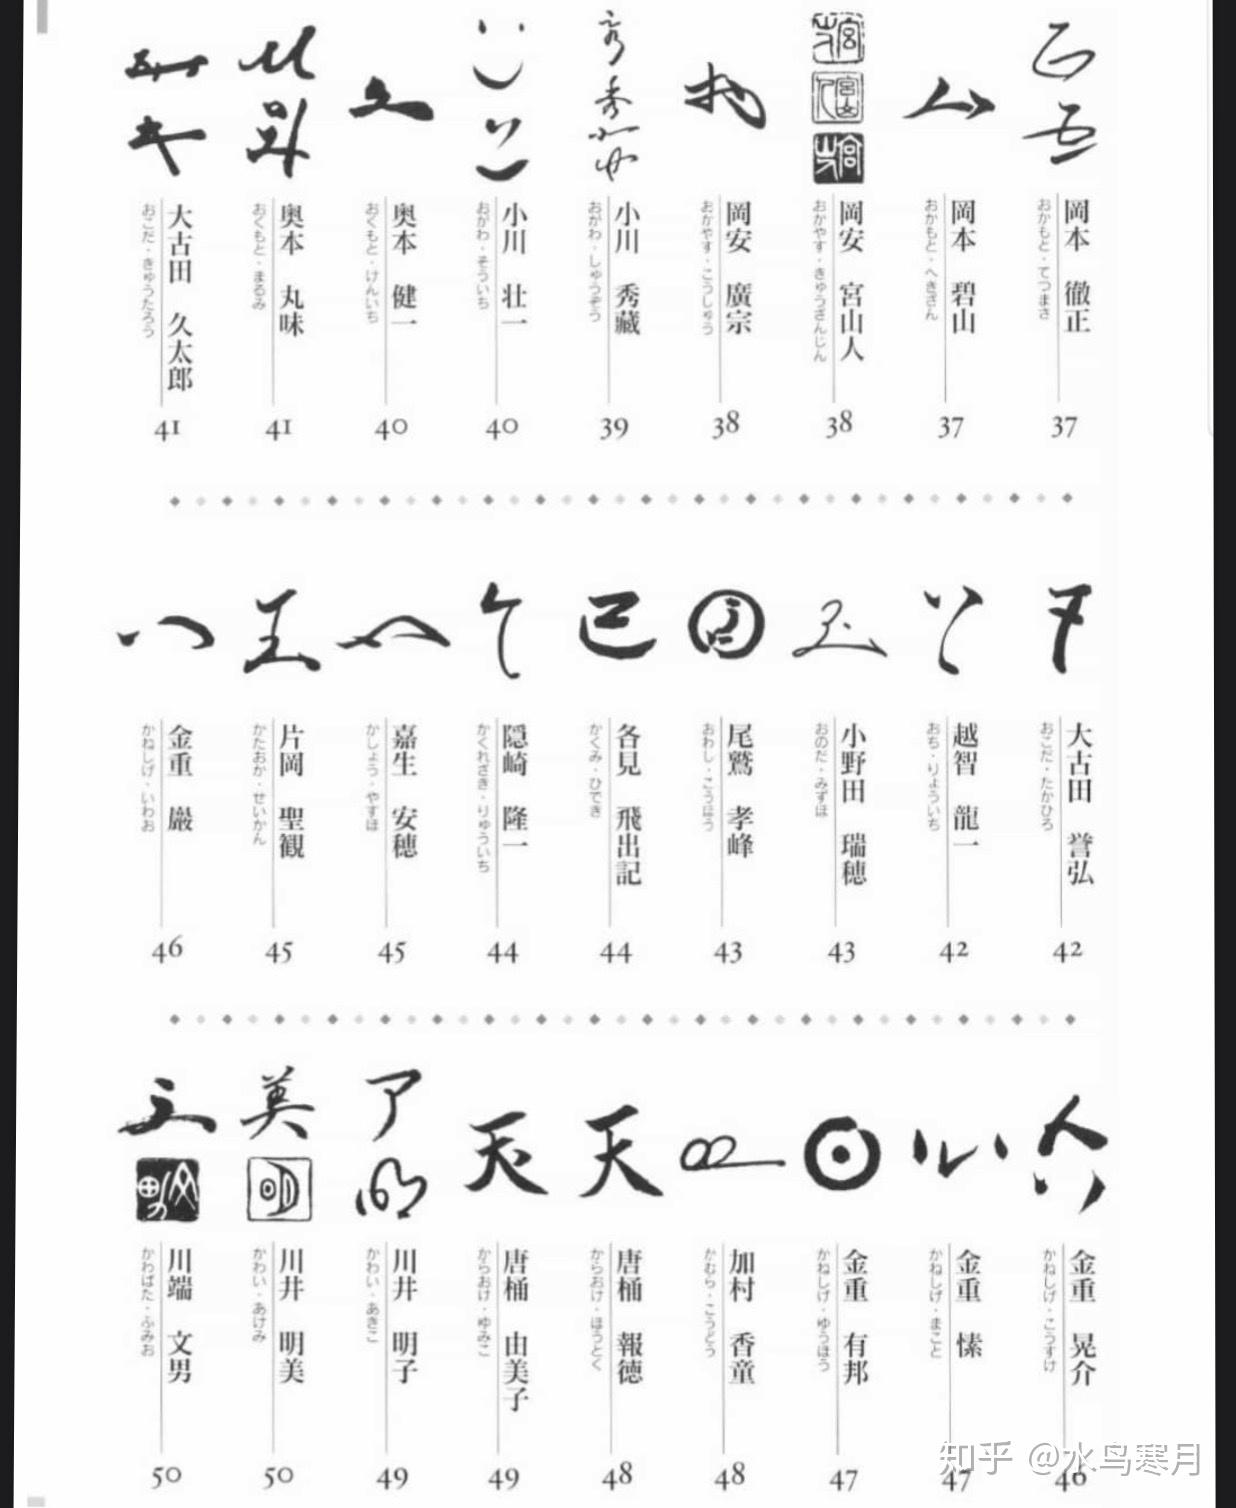 岡本 徹正
おかもと・てつまさ
37
岡本 碧山
おかもと・へきざん
37
岡安 宮山人
おかやす・きゅうざんじん
38
岡安 廣宗
おかやす・こうしゅう
38
小川 秀藏
おがわ・しゅうぞう
39
小川 壮一
おがわ・そういち
40
奥本 健一
おくもと・けんいち
40
奥本 丸味
おくもと・まるみ
41
大古田 久太郎
おこだ・きゅうたろう
41
大古田 誉弘
おこだ・たかひろ
42
越智 龍一
おち・りょういち
42
小野田 瑞穂
おのだ・みずほ
43
尾鷲 孝峰
おわし・こうほう
43
各見 飛出記
かくみ・ひでき
44
隠崎 隆一
かくれざき・りゅういち
44
嘉生 安穂
かしょう・やすほ
45
片岡 聖観
かたおか・せいかん
45
金重 巖
かねしげ・いわお
46
金重 晃介
かねしげ・こうすけ
46
金重 愫
かねしげ・まこと
47
金重 有邦
かねしげ・ゆうほう
47
加村 香童
かむら・こうどう
48
唐桶 報徳
からおけ・ほうとく
48
唐桶 由美子
からおけ・ゆみこ
49
川井 明子
かわい・あきこ
49
川井 明美
かわい・あけみ
50
川端 文男
かわばた・ふみお
50
知乎 @水鸟寒月